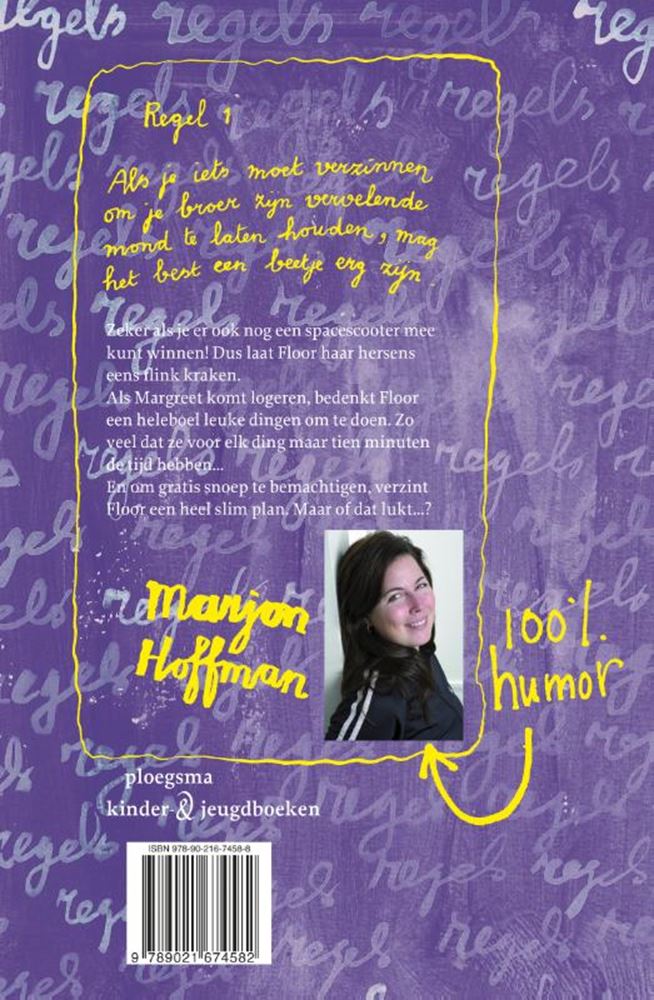 regels regels regels
regels regels regels
Regel 1
Als je iets moet verzinnen
om je broer zijn vervelende
mond te laten houden, mag
het best een beetje erg zijn.
Zeker als je er ook nog een spacescooter mee
kunt winnen! Dus laat Floor haar hersens
eens flink kraken.
Als Margreet komt logeren, bedenkt Floor
een heleboel leuke dingen om te doen. Zo
veel dat ze voor elk ding maar tien minuten
de tijd hebben...
En om gratis snoep te bemachtigen, verzint
Floor een heel slim plan. Maar of dat lukt...?
Marjon
Hoffman
100%
humor
ploegsma
kinder- & jeugdboeken
ISBN 978-90-216-7458-8
9 789021 674582